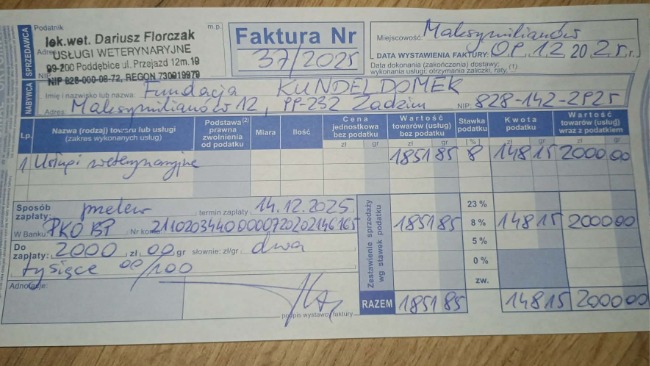 SPRZEDAWCA
Podatnik
m.p.
lek.wet. Dariusz Florczak
USŁUGI WETERYNARYJNE
99-200 Poddębice ul. Przejazd 12m.19
NIP 828-000-06-72, REGON 730919979
Faktura Nr
37/2025
Miejscowość Maksymilianów
DATA WYSTAWIENIA FAKTURY: 09.12 2025r.
Data dokonania (zakończenia) dostawy;
wykonania usługi, otrzymania zaliczki, raty, (1)
NABYWCA
Fundacja KUNDEL DOMEK
Imię i nazwisko lub nazwa:
Adres: Maksymilianów 12, 99-232 Zadzim NIP: 828-142-2925
Lp. Nazwa (rodzaj) towaru lub usługi (zakres wykonanych usług) Podstawa (2) prawna zwolnienia od podatku Miara Ilość Cena jednostkowa bez podatku zł gr Wartość towarów (usług) bez podatku zł gr Stawka podatku Kwota podatku zł gr Wartość towarów (usług) wraz z podatkiem zł gr
1 Usługi weterynaryjne 1851 85 8 148 15 2000 00
Sposób zapłaty: przelew termin zapłaty 14.12.2025
W Banku: PKO BP Nr konta
Do zapłaty: 2000 zł 00 gr słownie: zł/gr dwa
tysiące 00/100
Adnotacje:
podpis wystawcy faktury
Zestawienie sprzedaży wg stawek podatku
23 %
1851 85 8 % 148 15 2000 00
5 %
0 %
zw.
RAZEM 1851 85 148 15 2000 00